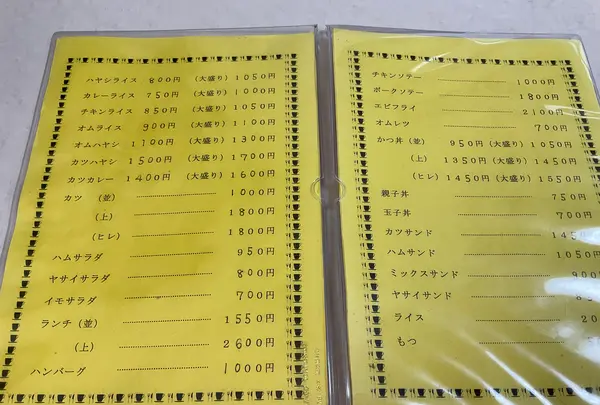 ハヤシライス 800円 (大盛り) 1050円
カレーライス 750円 (大盛り) 1000円
チキンライス 850円 (大盛り) 1050円
オムライス 900円 (大盛り) 1100円
オムハヤシ 1100円 (大盛り) 1300円
カツハヤシ 1500円 (大盛り) 1700円
カツカレー 1400円 (大盛り) 1600円
カツ (並) 1000円
(上) 1800円
(ヒレ) 1800円
ハムサラダ 950円
ヤサイサラダ 800円
イモサラダ 700円
ランチ (並) 1550円
(上) 2600円
ハンバーグ 1000円
チキンソテー 1000円
ポークソテー 1800円
エビフライ 2100円
オムレツ 700円
かつ丼 (並) 950円 (大盛り) 1050円
(上) 1350円 (大盛り) 1450円
(ヒレ) 1450円 (大盛り) 1550円
親子丼 750円
玉子丼 700円
カツサンド
ハムサンド 1050円
ミックスサンド 900円
ヤサイサンド
ライス
もつ